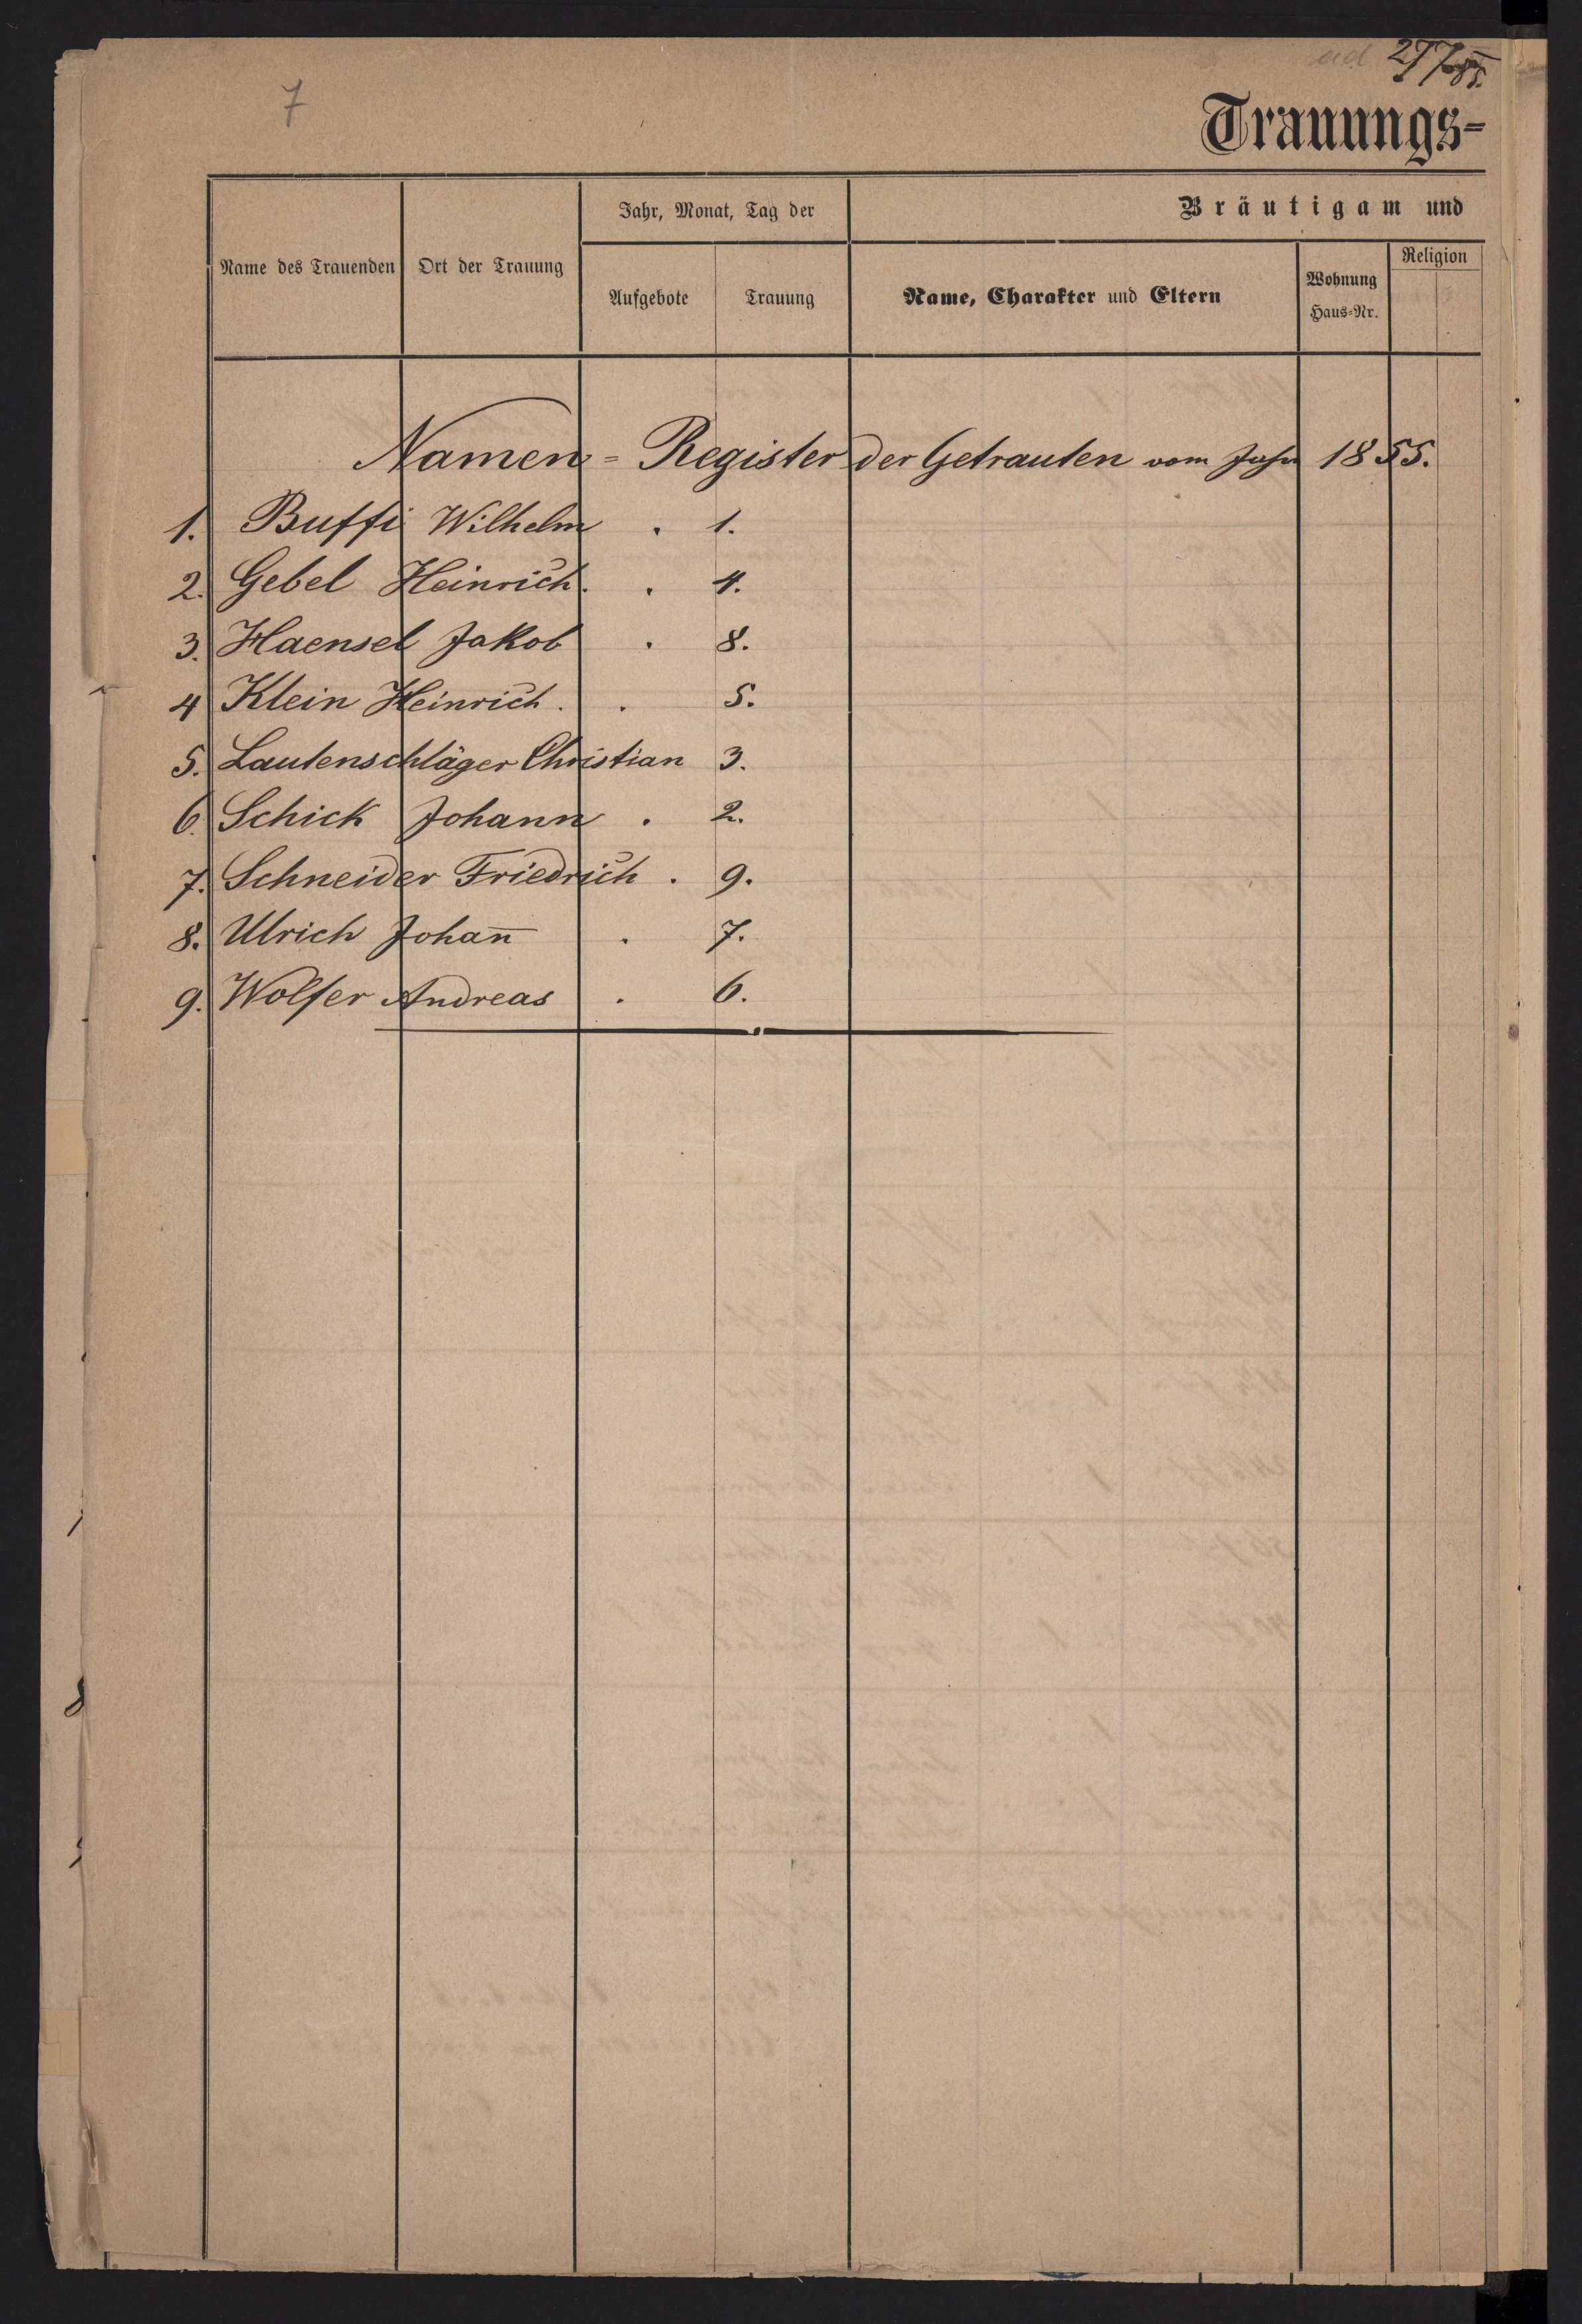 7
ad 277/85.
Trauungs-
Name des Trauenden
Ort der Trauung
Jahr, Monat, Tag der
Aufgebote
Trauung
Bräutigam und
Name, Charakter und Eltern
Wohnung
Haus-Nr.
Religion
Namen = Register der Getrauten vom Jahr 1855.
1. Buffi Wilhelm . 1.
2. Gebel Heinrich . . 4.
3. Haensel Jakob . 8.
4 Klein Heinrich . . 5.
5. Lautenschläger Christian 3.
6. Schick Johann . 2.
7. Schneider Friedrich . 9.
8. Ulrich Johan̄ . 7.
9. Wolfer Andreas . 6.